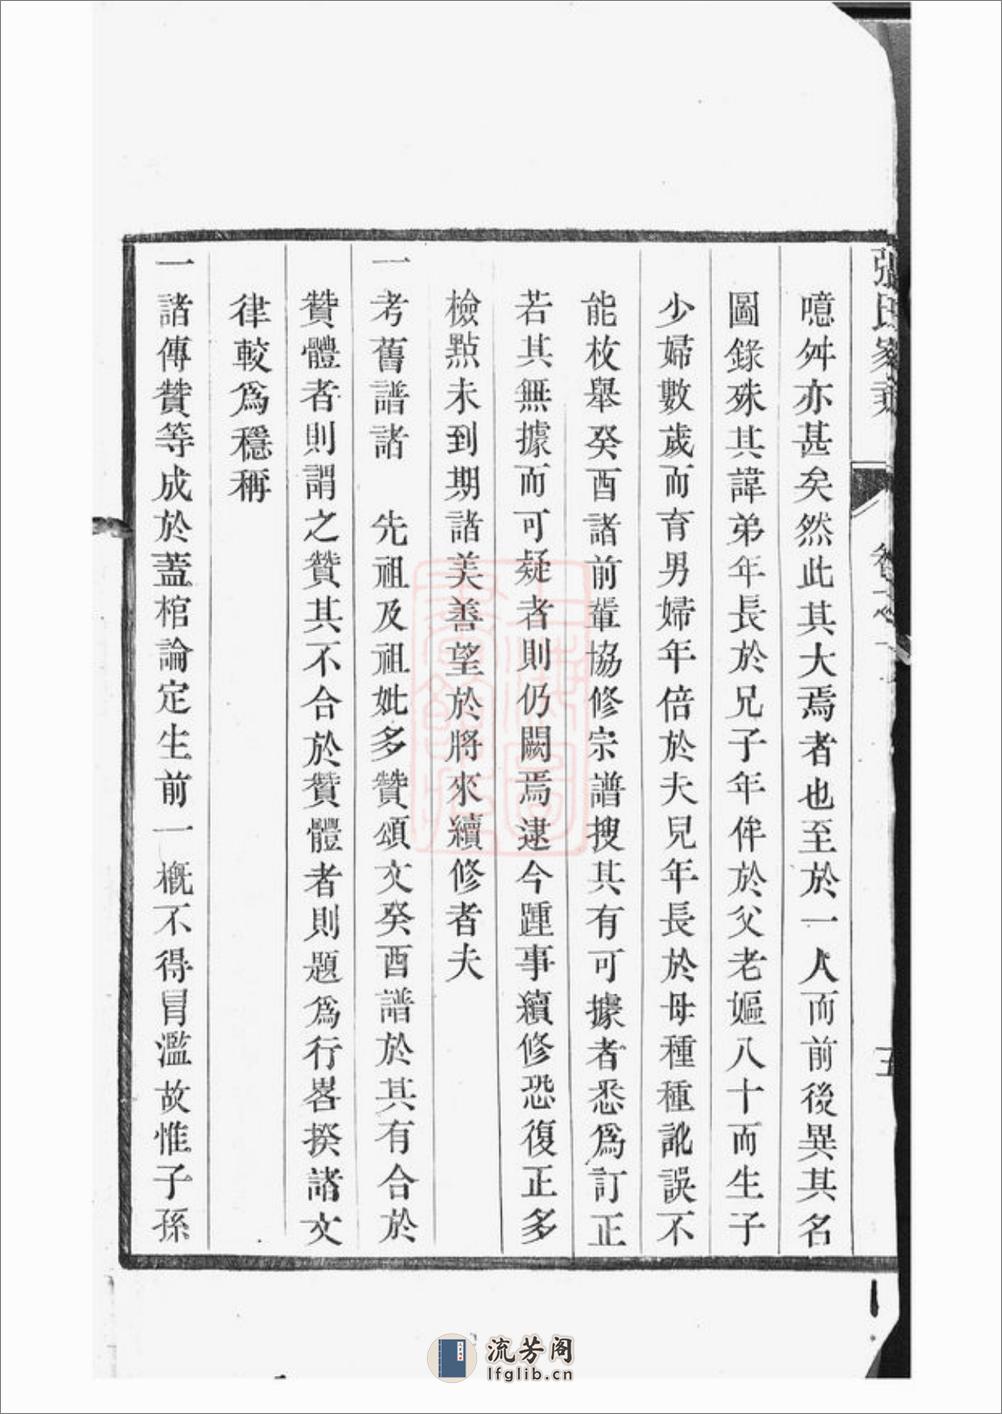 張氏家乘
卷之一
五
噫舛亦甚矣然此其大焉者也至於一人而前後異其名
圖錄殊其諱弟年長於兄子年侔於父老嫗八十而生子
少婦數歲而育男婦年倍於夫兒年長於母種種訛誤不
能枚舉癸酉諸前輩協修宗譜搜其有可據者悉爲訂正
若其無據而可疑者則仍闕焉逮今踵事續修恐復正多
檢點未到期諸美善望於將來續修者夫
一考舊譜諸 先祖及祖妣多贊頌文癸酉譜於其有合於
贊體者則謂之贊其不合於贊體者則題爲行畧揆諸文
律較爲穩稱
一諸傳贊等成於蓋棺論定生前一概不得冒濫故惟子孫
上海圖書館藏
流芳阁
lfglib.cn